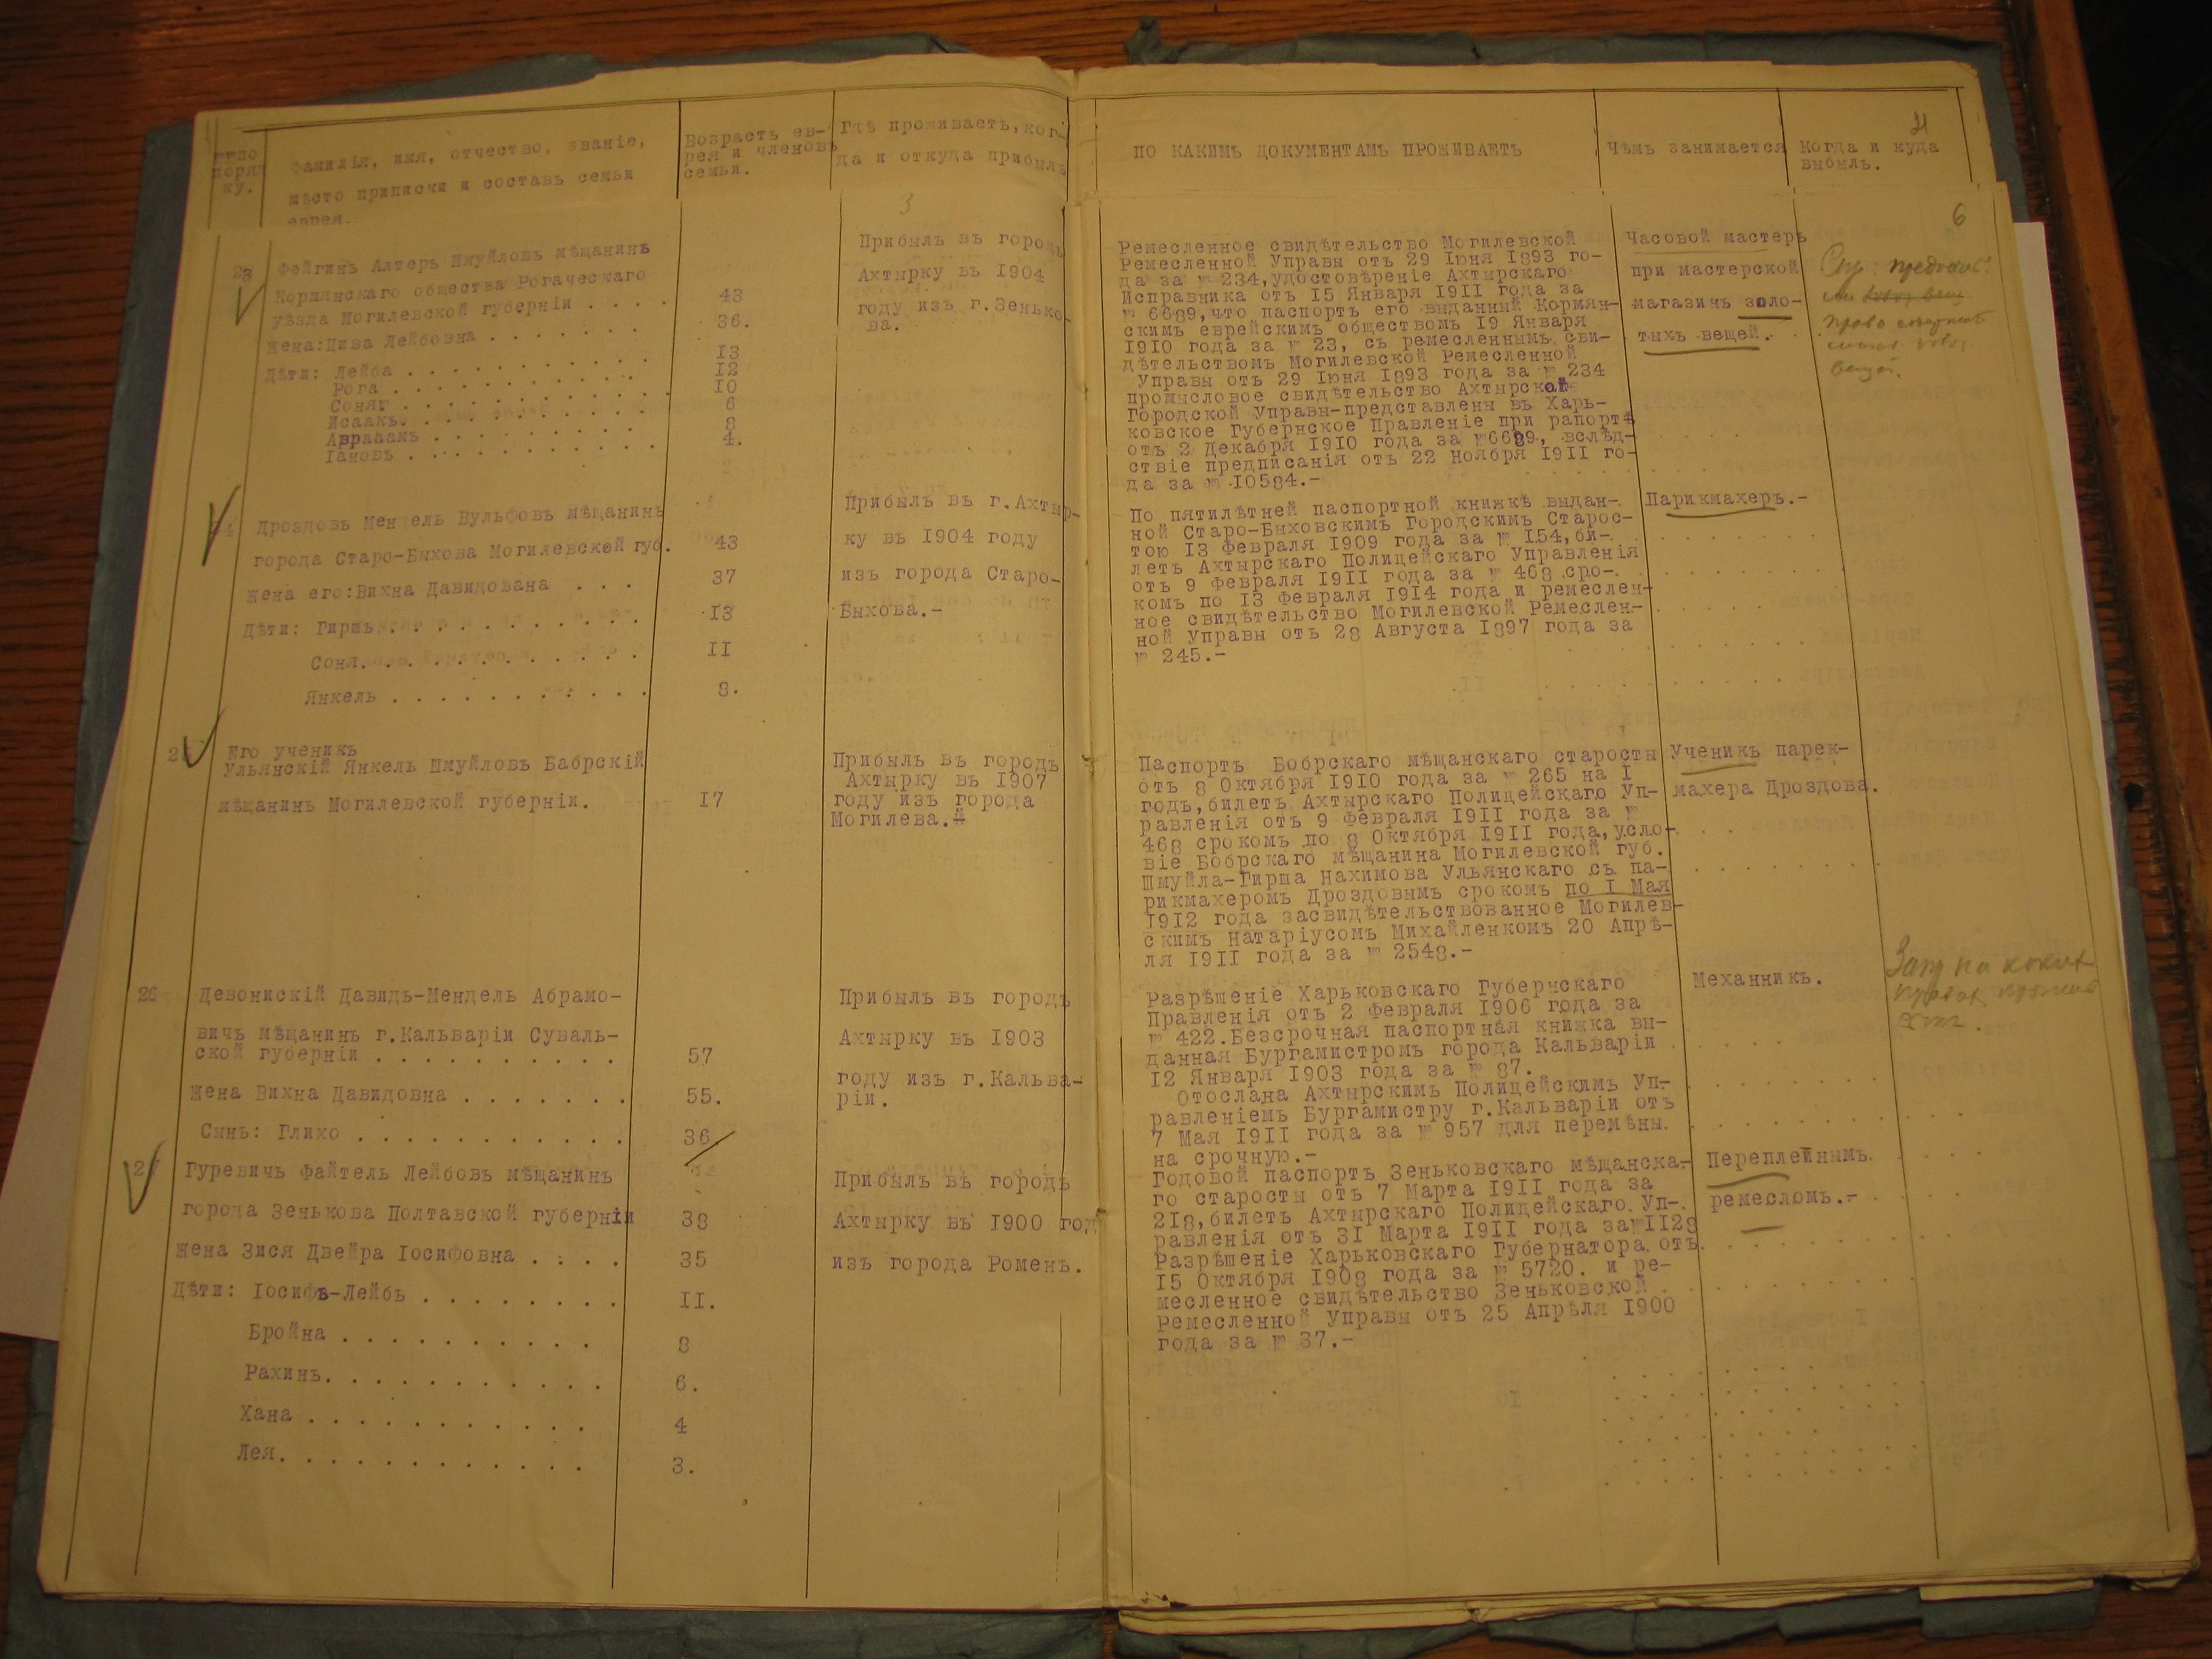 №№ по
поряд
ку.
Фамилія, имя, отчество, званіе,
мѣсто приписки и составъ семьи
еврея.
Возрастъ ев-
рея и членовъ
семьи.
Гдѣ проживаетъ, ког-
да и откуда прибылъ
ПО КАКИМЪ ДОКУМЕНТАМЪ ПРОЖИВАЕТЪ
Чѣмъ занимается
Когда и куда
выбылъ.
3
6
23
Фейгинъ Алтеръ Шмуйловъ мѣщанинъ
Кормянскаго общества Рогаческаго
уѣзда Могилевской губерніи . . . . 43
Жена:Цива Лейбовна . . . . . . 36.
Дѣти: Лейба . . . . . . . . . . 13
Рога . . . . . . . . . . . 12
Соняг . . . . . . . . . . . 10
Исаакъ. . . . . . . . . . 6
Авраамъ . . . . . . . . . 8
Іановъ . . . . . . . . . . . 4.
Прибылъ въ городъ
Ахтырку въ 1904
году изъ г.Зенько-
ва.
Ремесленное свидѣтельство Могилевской
Ремесленной Управы отъ 29 Іюня 1893 го-
да за № 234,удостовѣреніе Ахтырскаго
Исправника отъ 15 Января 1911 года за
№ 6689,что паспортъ его выданный Кормян-
скимъ еврейскимъ обществомъ 19 Января
1910 года за № 23, съ ремесленнымъ сви-
дѣтельствомъ Могилевской Ремесленной
Управы отъ 29 Іюня 1893 года за № 234
промысловое свидѣтельство Ахтырской
Городской Управы-представлены въ Харь-
ковское Губернское Правленіе при рапортѣ
отъ 2 Декабря 1910 года за №6689, вслѣд-
ствіе предписанія отъ 22 Ноября 1911 го-
да за № 10584.-
Часовой мастеръ
при мастерской
магазинъ золо-
тыхъ вещей.
вещей.
24
Дроздовъ Мендель Вульфовъ мѣщанинъ
города Старо-Быхова Могилевской губ. 43
Жена его:Вихна Давидована . . . 37
Дѣти: Гиршъ. . . . . . . . . . . 13
Соня. . . . . . . . . . . . 11
Янкель . . . . . . . . . . . 8.
Прибылъ въ г.Ахтыр-
ку въ 1904 году
изъ города Старо-
Быхова.-
По пятилѣтней паспортной книжкѣ выдан-
ной Старо-Быховскимъ Городскимъ Старос-
тою 13 Февраля 1909 года за № 154,би-
летъ Ахтырскаго Полицейскаго Управленія
отъ 9 Февраля 1911 года за № 468 сро-
комъ по 13 Февраля 1914 года и ремеслен-
ное свидѣтельство Могилевской Ремеслен-
ной Управы отъ 28 Августа 1897 года за
№ 245.-
Парикмахеръ.-
Его ученик
Ульянскій Янкель Шмуйловъ Бабрскій
мѣщанинъ Могилевской губерніи. 17
Прибылъ въ городъ
Ахтырку въ 1907
году изъ города
Могилева.
Паспортъ Бобрскаго мѣщанскаго старосты
отъ 8 Октября 1910 года за № 265 на 1
годъ,билетъ Ахтырскаго Полицейскаго Уп-
равленія отъ 9 Февраля 1911 года за №
468 срокомъ по 8 Октября 1911 года,усло-
віе Бобрскаго мѣщанина Могилевской губ.
Шмуйла-Гирша Нахимова Ульянскаго съ па-
рикмахеромъ Дроздовымъ срокомъ по 1 Мая
1912 года засвидѣтельствованное Могилев-
скимъ Натаріусомъ Михайленкомъ 20 Апрѣ-
ля 1911 года за № 2548.-
Ученикъ парек-
махера Дроздова.
26
Девонискій Давидъ-Мендель Абрамо-
вичъ мѣщанинъ г.Кальваріи Суваль-
ской губерніи . . . . . . . . . . 57
Жена Вихна Давидовна . . . . . . . 55.
Сынъ: Глихо . . . . . . . . . . . . 36.
Прибылъ въ городъ
Ахтырку въ 1903
году изъ г.Кальва-
ріи.
Разрѣшеніе Харьковскаго Губернскаго
Правленія отъ 2 Февраля 1906 года за
№ 422.Безсрочная паспортная книжка вы-
данная Бургамистромъ города Кальваріи
12 Января 1903 года за № 87.
Отослана Ахтырскимъ Полицейскимъ Уп-
равленіемъ Бургамистру г.Кальваріи отъ
7 Мая 1911 года за № 957 для перемѣны.
на срочную.-
Механникъ.
27
Гуревичъ Файтель Лейбовъ мѣщанинъ
города Зенькова Полтавской губерніи 38
Жена Зися Двейра Іосифовна . . . . 35
Дѣти: Іосифъ-Лейбъ . . . . . . . . 11.
Бройна . . . . . . . . . . 8
Рахинъ. . . . . . . . . . . 6.
Хана . . . . . . . . . . . 4
Лея. . . . . . . . . . . . 3.
Прибылъ въ городъ
Ахтырку въ 1900 год
изъ города Роменъ.
Годовой паспортъ Зеньковскаго мѣщанска-
го старосты отъ 7 Марта 1911 года за
218,билетъ Ахтырскаго Полицейскаго Уп-
равленія отъ 31 Марта 1911 года за№1128
Разрѣшеніе Харьковскаго Губернатора отъ
15 Октября 1908 года за № 5720. и ре-
месленное свидѣтельство Зеньковской
Ремесленной Управы отъ 25 Апрѣля 1900
года за № 37.-
Переплейнымъ
ремесломъ.-